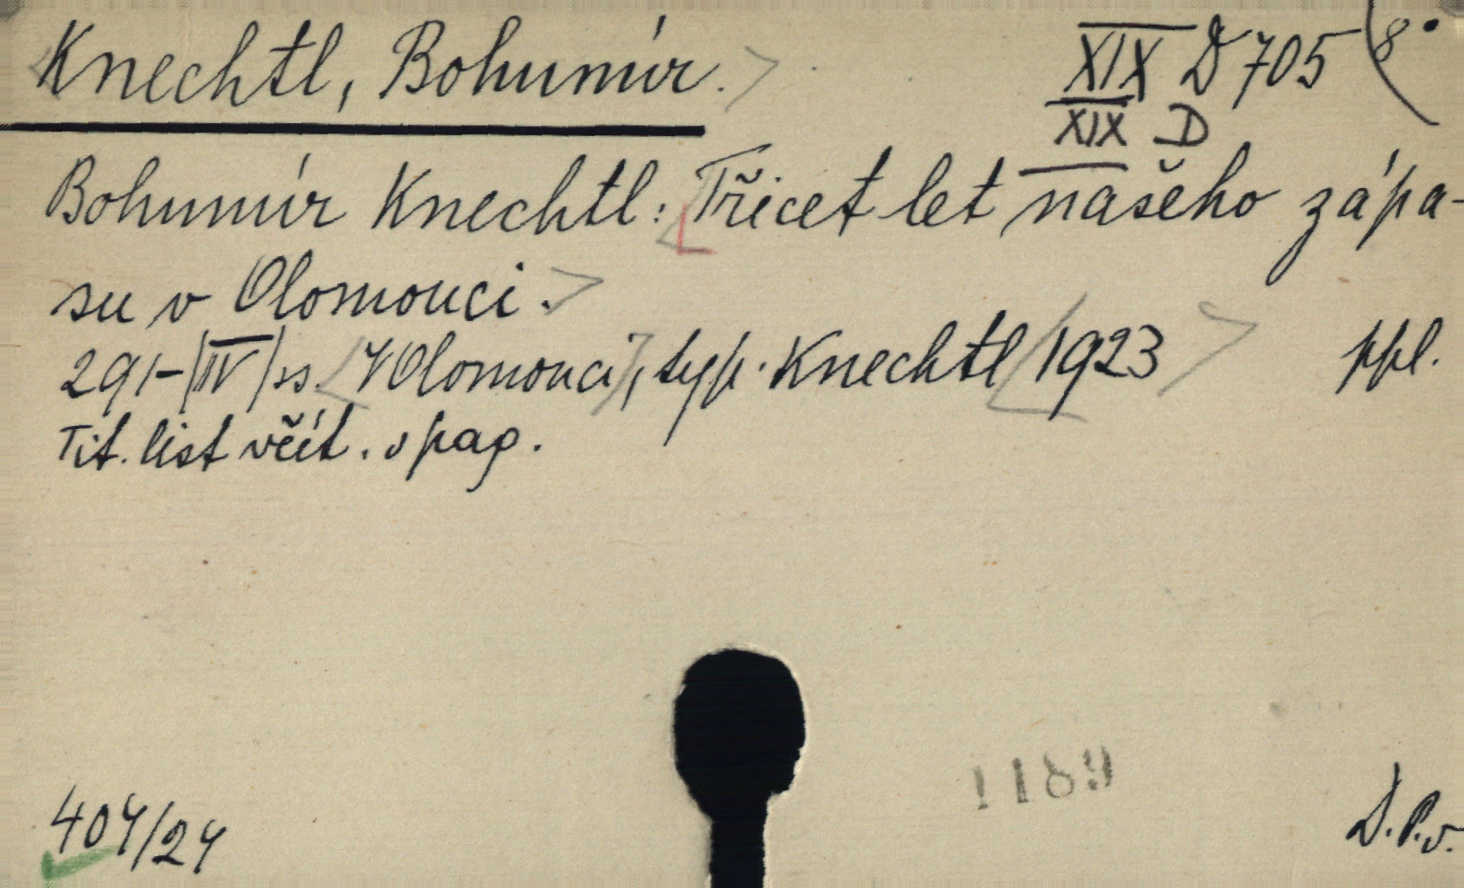 Knechtl, Bohumír. XIX D 705 8°
XIX D
Bohumír Knechtl: Třicet let našeho zápa-
su v Olomouci.
291-(IV) ss. V Olomouci, typ. Knechtl 1923 ppl.
Tit. list včít. v pag.
1189
404/24 D.P.v.